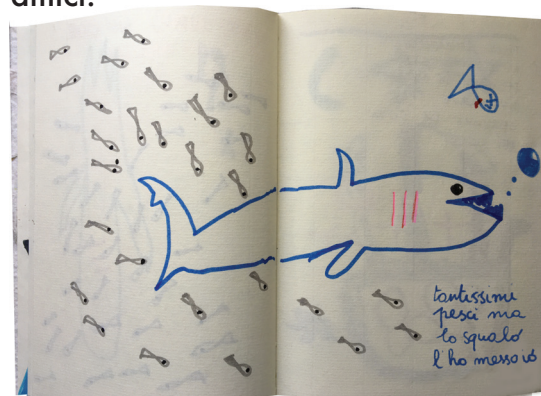 amici.
tantissimi
pesci ma
lo squalo
l'ho messo io